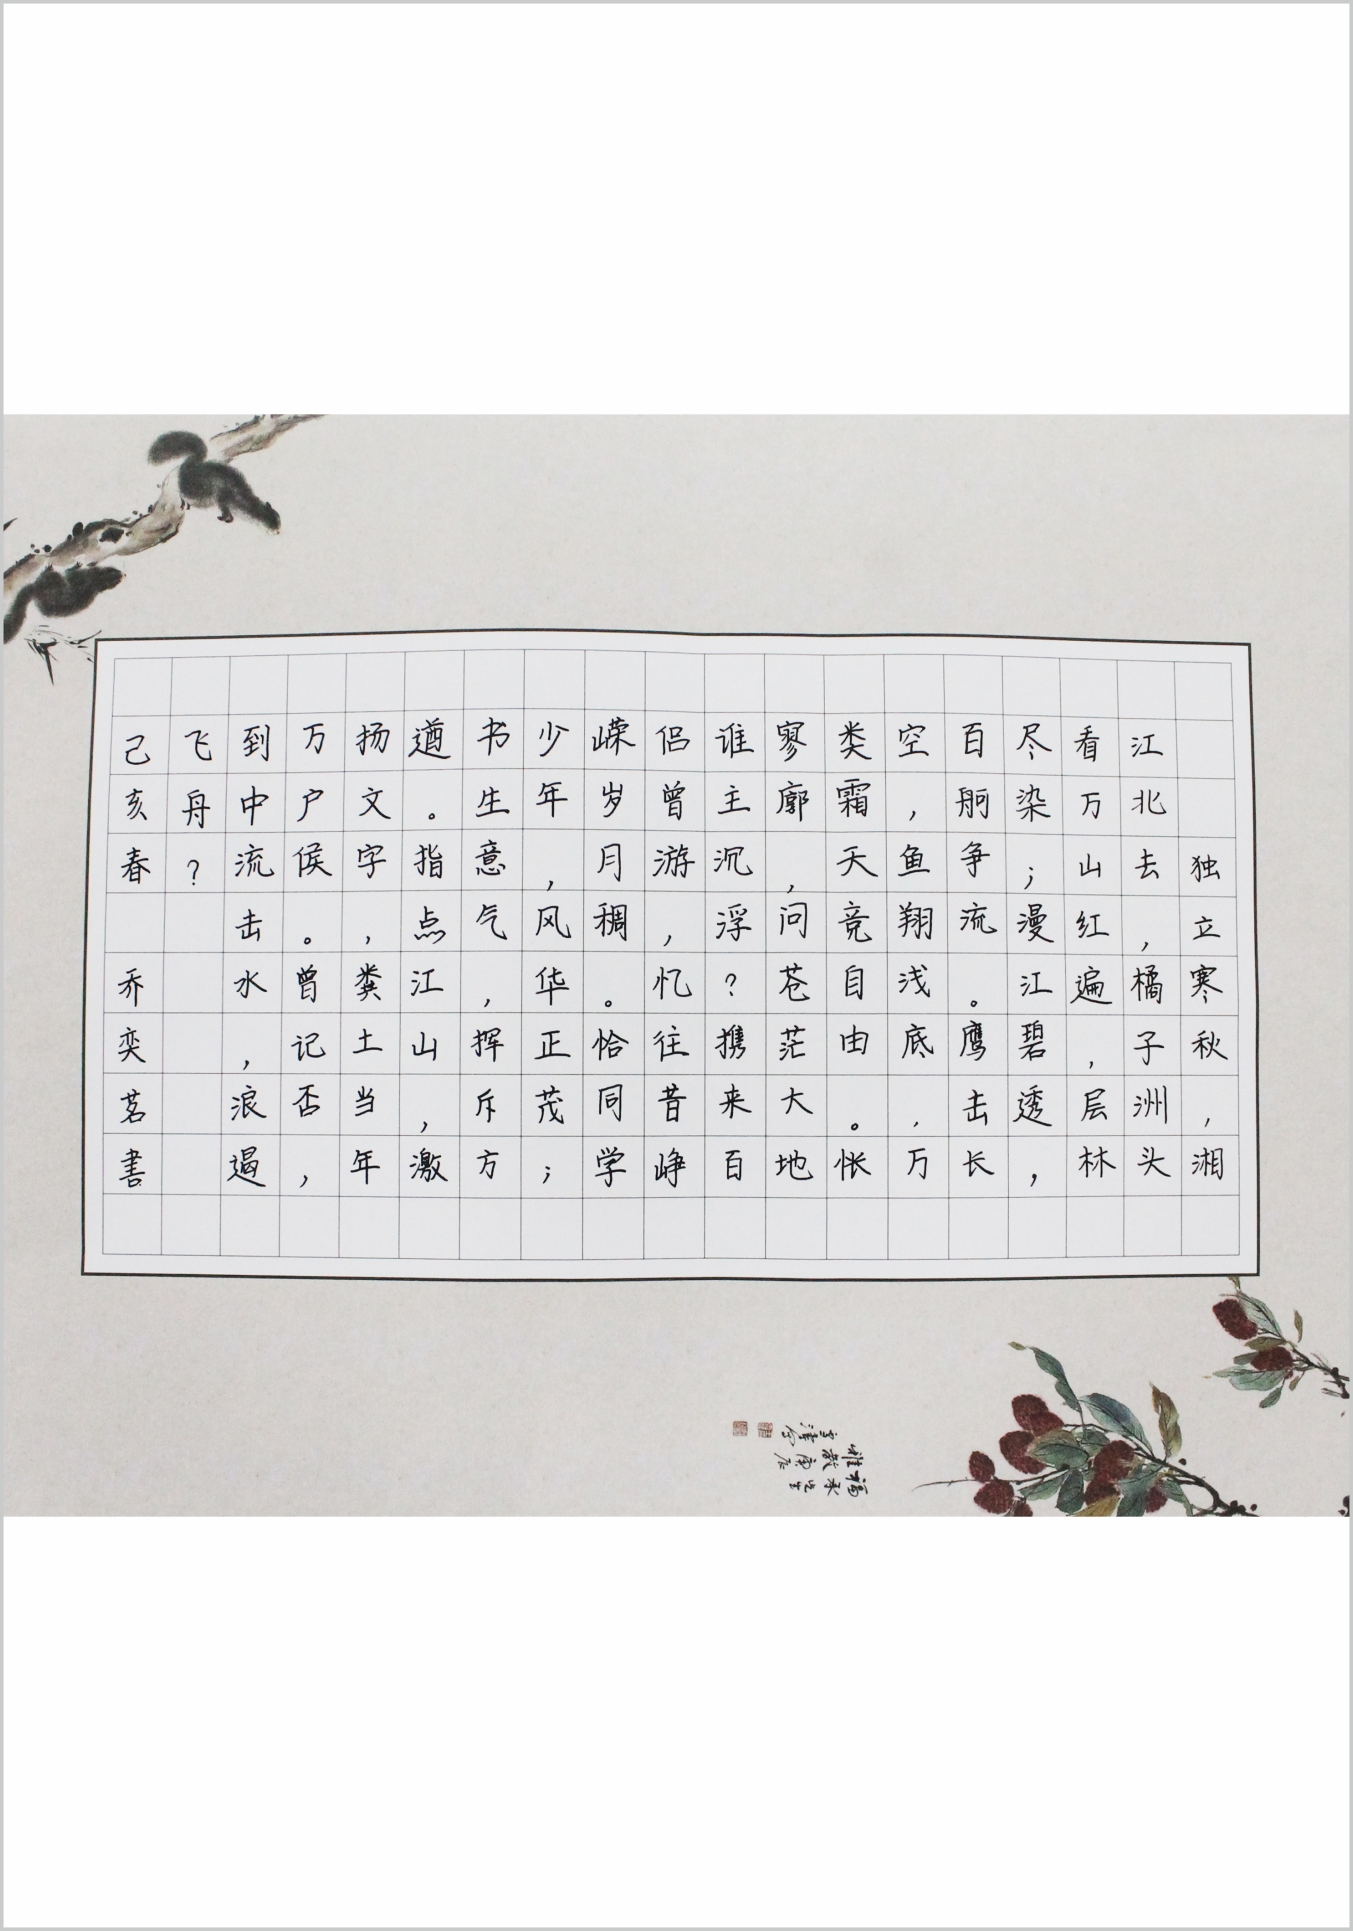 独立寒秋，湘
江北去，橘子洲头
看万山红遍，层林
尽染；漫江碧透，
百舸争流。鹰击长
空，鱼翔浅底，万
类霜天竞自由。怅
寥廓，问苍茫大地
谁主沉浮？携来百
侣曾游，忆往昔峥
嵘岁月稠。恰同学
少年，风华正茂；
书生意气，挥斥方
遒。指点江山，激
扬文字，粪土当年
万户侯。曾记否，
到中流击水，浪遏
飞舟？
己亥春 乔奕茗書